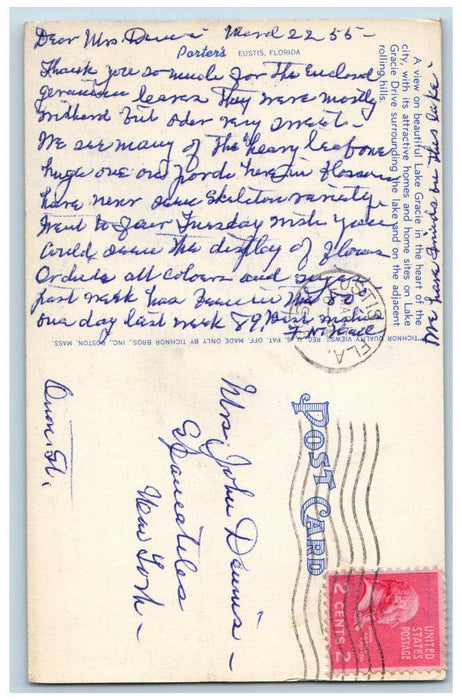 Dear Mrs. Dennis March 22 55 -
Porter's EUSTIS, FLORIDA
Thank you so much for the Enclosed
geranium leaves They were mostly
withered but odor very sweet. -
We see many of the heavy leaf one
huge one on porch here in blossom
have never seen Skeleton variety
Went to fair Tuesday wish you
could seen the display of flowers
Orchids all colours and
past week has been in the 80
one day last week 89, Best wishes
F. N. Hall
A view on beautiful Lake Gracie in the heart of the
city, with its attractive homes and home sites on Lake
Gracie Drive surrounding the lake and on the adjacent
rolling hills.
We are on this Lake.
TICHNOR QUALITY VIEWS, REG. U. S. PAT. OFF. MADE ONLY BY TICHNOR BROS., INC., BOSTON, MASS.
EUSTIS
FLA.
POST CARD
Mrs. John Dennis -
Skaneateles
New York -
St.
UNITED
STATES
POSTAGE
2 CENTS 2